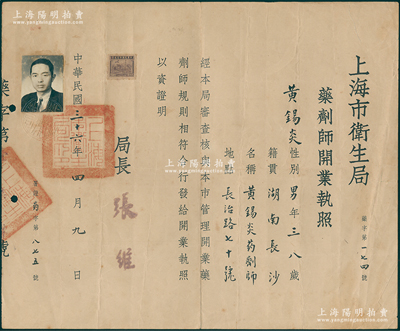 上海陽明拍賣
www.yangmingauction.com
上海市衛生局
藥劑師開業執照
藥字第一七四號
黃錫炎性別男年三八歲
籍貫湖南長沙
名稱黃錫炎药劑師
地點長治路七十號
經本局審查核與本市管理開業藥
劑師規則相符合行發給開業執照
以資證明
局長 張維
中華民國三十六年四月九日
藥字第
號
第八七五號
上海陽明拍賣
www.yangmingauction.com